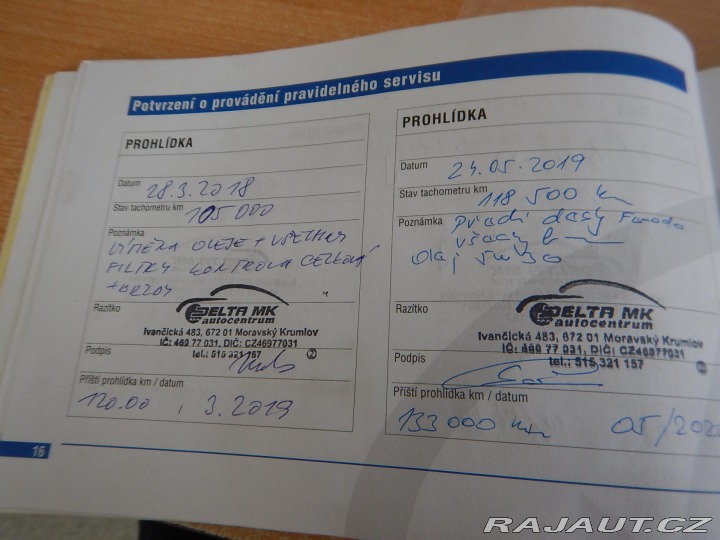 Potvrzení o provádění pravidelného servisu
PROHLÍDKA
Datum
28.3.2018
Stav tachometru km
105 000
Poznámka
VÝMĚNA OLEJE + VŠECHNY
FILTRY KONTROLA CELKOVÁ
+ BRZDY
Razítko
DELTA MK
autocentrum
Ivančická 483, 672 01 Moravský Krumlov
IČ: 469 77 031, DIČ: CZ46977031
tel.: 515 321 157
2
Podpis
Příští prohlídka km / datum
120.00 , 3.2019
PROHLÍDKA
Datum
24.05.2019
Stav tachometru km
118 500 km
Poznámka
Přadí
Olej
Razítko
DELTA MK
autocentrum
Ivančická 483, 672 01 Moravský Krumlov
IČ: 469 77 031, DIČ: CZ46977031
tel.: 515 321 157
2
Podpis
Příští prohlídka km / datum
133 000 km 05/202
16
RAJAUT.CZ